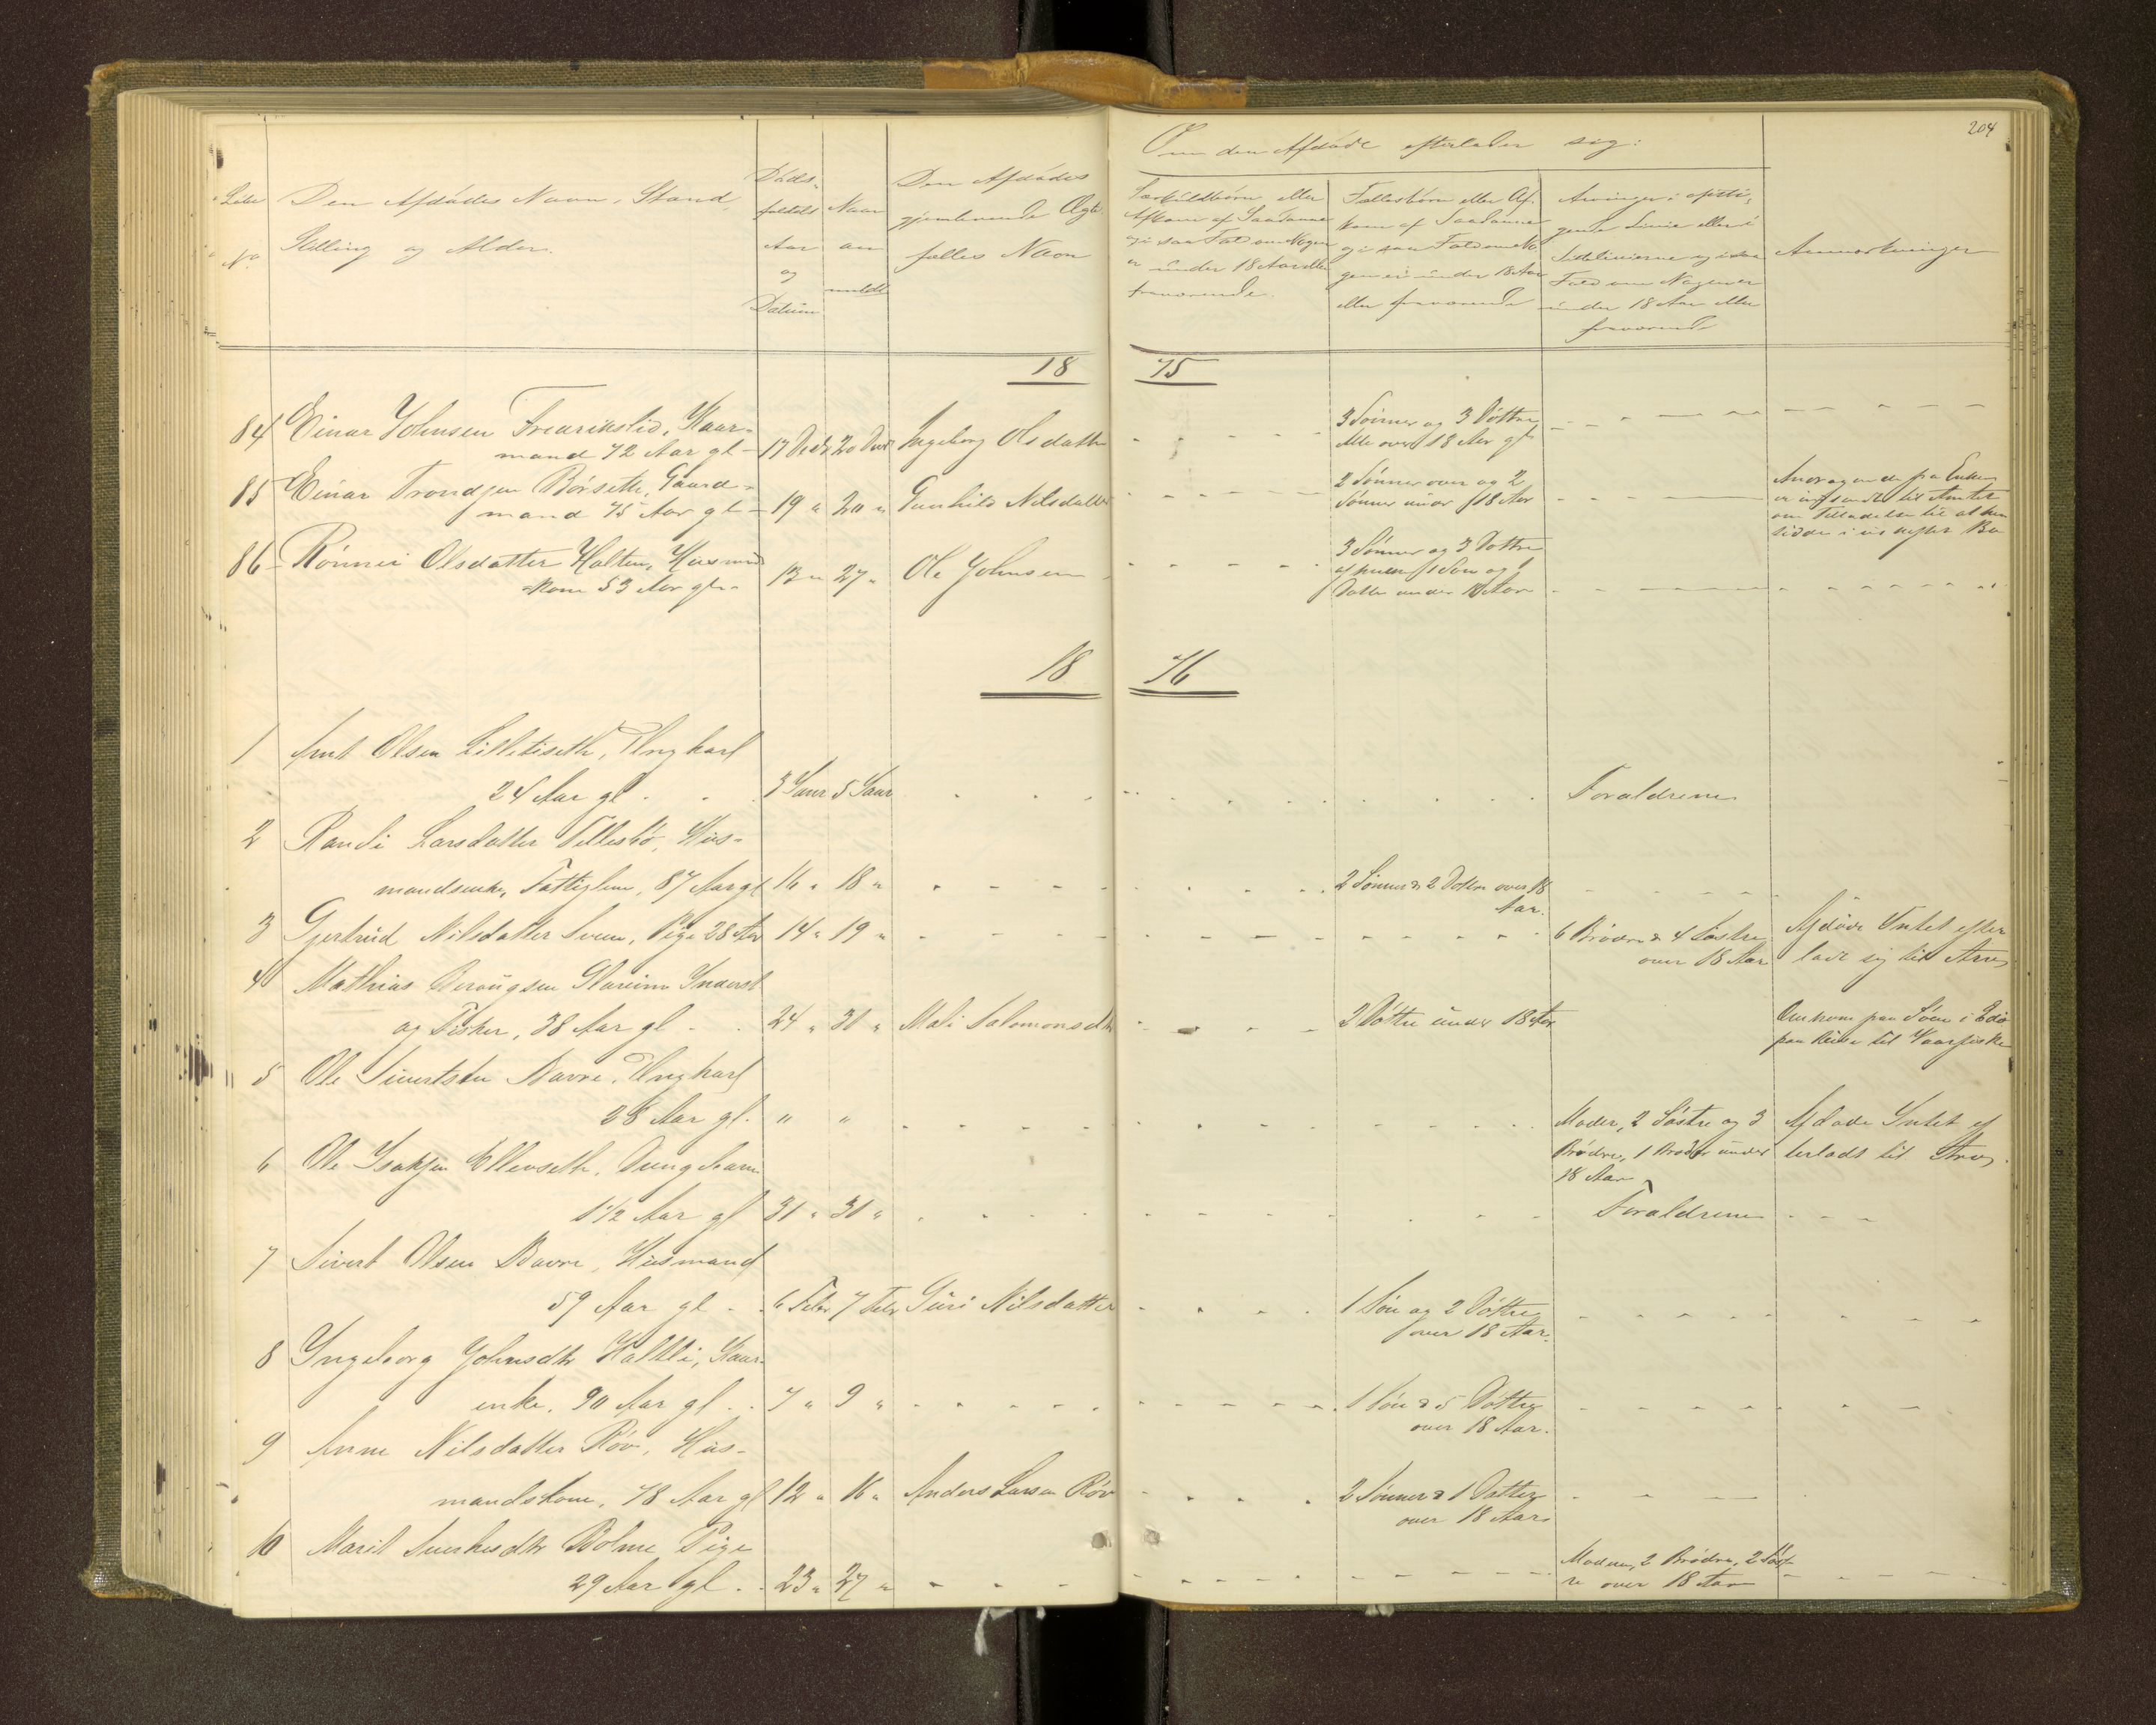 204
Om den Afdøde efterlader sig:
Løbe
No
Den Afdødes Navn, Stand,
Stilling og Alder.
Døds-
faldets
Aar
og
Datum
Naar
an
meldt
Den Afdødes
gjenlevende Ægte
fælles Navn
Særkuldbørn eller
Afkom af Saadanne
og i saa Fald om Nogen
er under 18 Aar eller
fraværende.
Fællesbørn eller Af-
kom af Saadanne
og i saa Fald om No-
gen er under 18 Aar
eller fraværende
Arvinger i opsti-
gende Linie eller i
Sidelinierne og i saa
Fald om Nogen er
under 18 Aar eller
fraværende
Anmærkninger
18 75
84 Einar Johnsen Fredrikslid, Kaar-
mand 72 Aar gl - 17 Decbr 20 Decbr Ingeborg Olsdatter
3 Sønner og 3 Døttre
Alle over 18 Aar gl
85 Einar Trondsen Børseth, Gaard-
mand 75 Aar gl - 19 " 20 " Gunhild Nilsdatter
2 Sønner over og 2
Sønner under 18 Aar
Andragende fra Enken
er indsendt til Amtet
om Tilladelse til at hen
sidde i uskiftet Bo
86 Rønnei Olsdatter Holten, Husmds
kone 53 Aar gl. 13 " 27 " Ole Johnsen
3 Sønner og 3 Døttre
af hvem 1 Søn og 1
Datter under 18 Aar
18 76
1 Arnt Olsen Lilletiseth, Ungkarl
24 Aar gl. 3 Janr 5 Janr Forældrene
2 Randi Larsdatter Tellesbø, Hus-
mandsenke, Fattiglem, 87 Aar gl 16 " 18 " 2 Sønner & 2 Døttre over 18
Aar.
3 Gjertrud Nilsdatter Sveen, Pige 28 Aar 14 " 19 " 6 Brødre & 4 Søstre
over 18 Aar
Afdøde Intet efter
ladt sig til Arv
4 Mathias Glærum Inderst
og Fisker, 38 Aar gl - 24 " 31 " Mali Salomonsdtr 2 Døttre under 18 Aar
Omkom paa Søen i Edø
paa Reise til Vaarfiske
5 Ole Sivertsen Bævre, Ungkarl
28 Aar gl. " " Moder, 2 Søstre og 3
Brødre, 1 Broder under
18 Aar
Afdøde Intet ef
terladt til Arv.
6 Ole Isaksen Ellevseth, Dungbarn
1 1/2 Aar gl 31 " 31 " Forældrene
7 Sivert Olsen Bævre, Husmand
59 Aar gl - 6 Febr 7 Febr Guri Nilsdatter 1 Søn og 2 Døttre
over 18 Aar.
8 Ingeborg Johnsdtr Halsli, Kaar-
enke, 90 Aar gl. 7 " 9 " 1 Søn & 5 Døttre
over 18 Aar.
9 Anne Nilsdatter Røv, Hus-
mandskone, 78 Aar gl 12 " 16 " Anders Larsen Røv 2 Sønner & 1 Datter
over 18 Aar
10 Marit Sverkesdtr Bolme Pige
29 Aar gl. 23 " 27 " Moder, 2 Brødre, 2 Søst-
re over 18 Aar